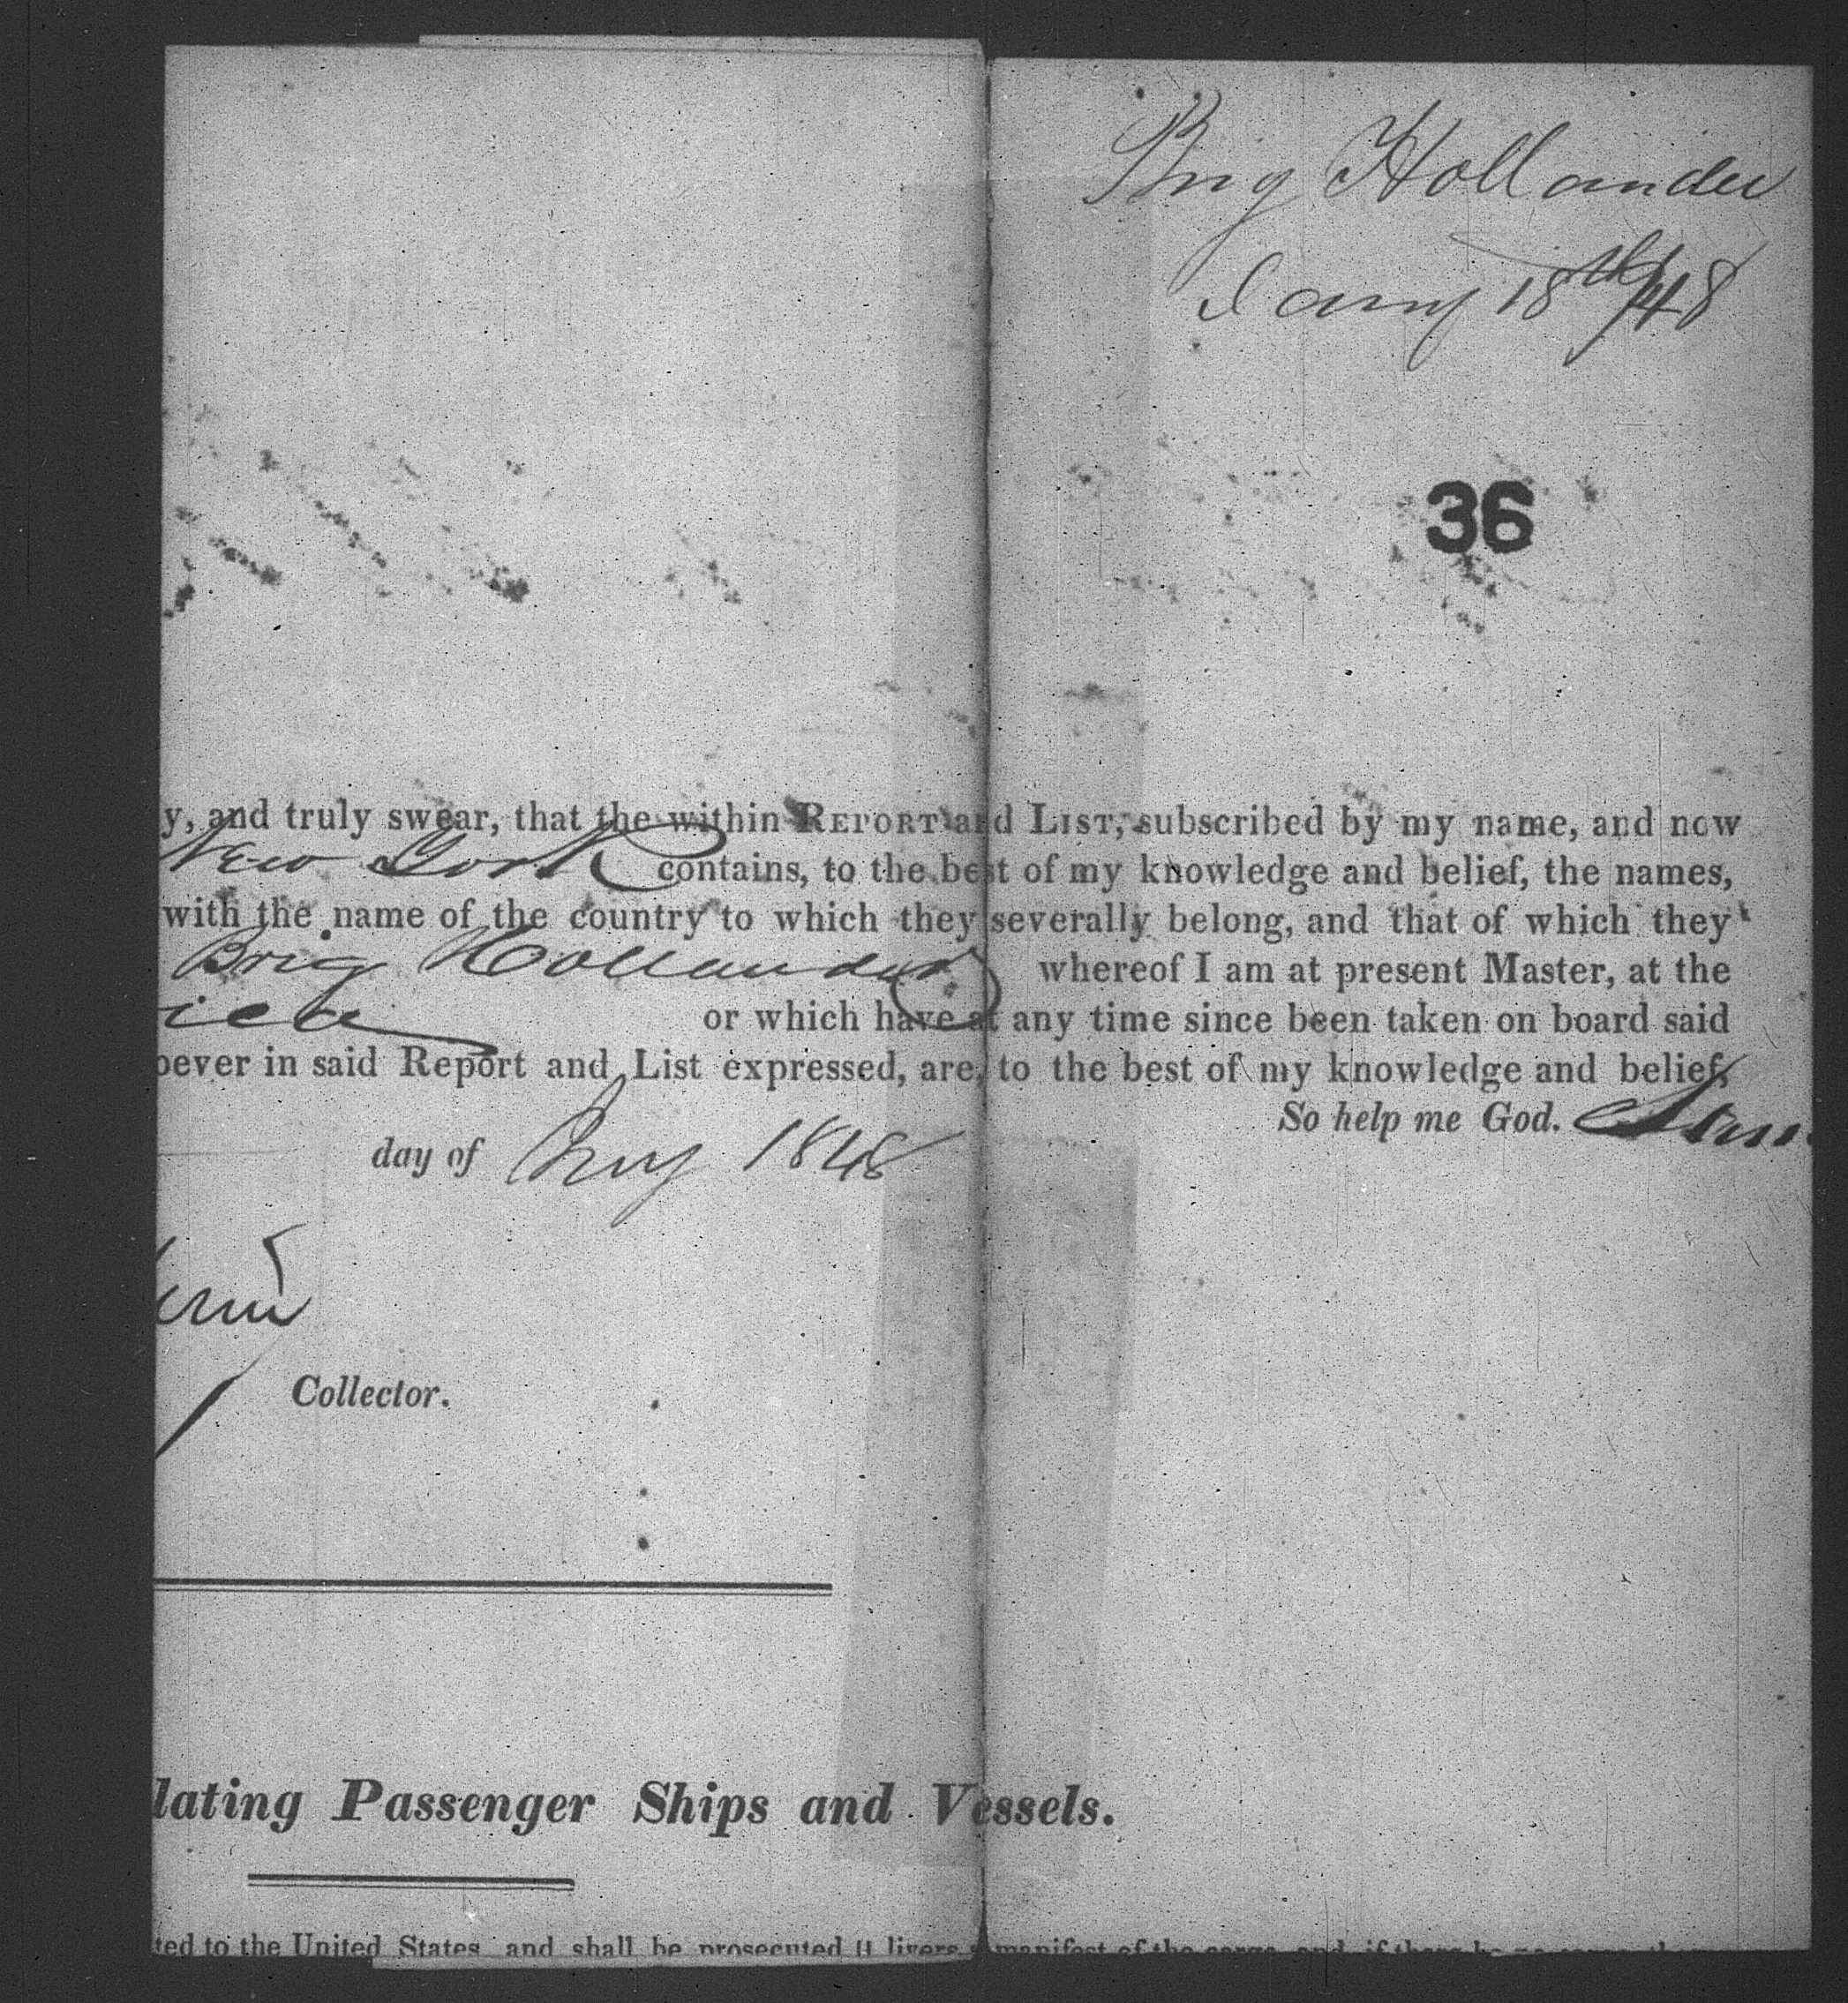 Brig Hollander
Jany 18th/48
36
y, and truly swear, that the within REPORT and LIST, subscribed by my name, and now
New York contains, to the best of my knowledge and belief, the names,
with the name of the country to which they severally belong, and that of which they
Brig Hollander whereof I am at present Master, at the
ica or which have at any time since been taken on board said
oever in said Report and List expressed, are, to the best of my knowledge and belief,
So help me God.
day of Jany 1848
Collector.
lating Passenger Ships and Vessels.
ted to the United States, and shall be prosecuted
manifest of the cargo, and, if there be no cargo, then